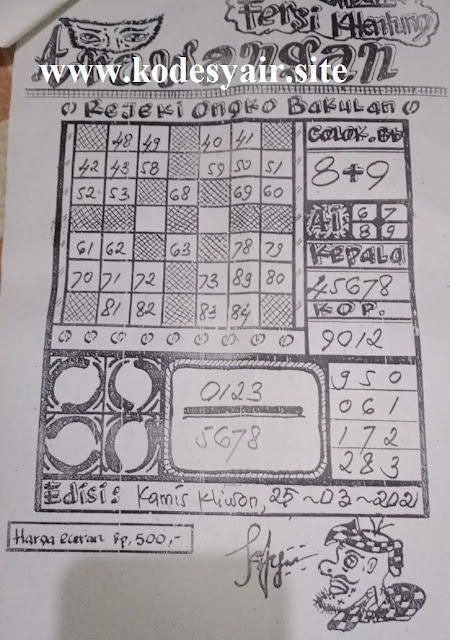 Fersi Khentung
www.kodesyair.site
Rejeki Ongko Bakulan
48 49 40 41
42 43 58 59 50 51
52 53 68 69 60
61 62 63 78 79
70 71 72 73 89 80
81 82 83 84
COLOK.BB
8+9
AI 6 7
8 9
KEPALA
45678
KOP.
9012
0123
5678
950
061
172
283
Edisi: Kamis Kliwon, 25~03~2021
Harga eceran Rp, 500,-